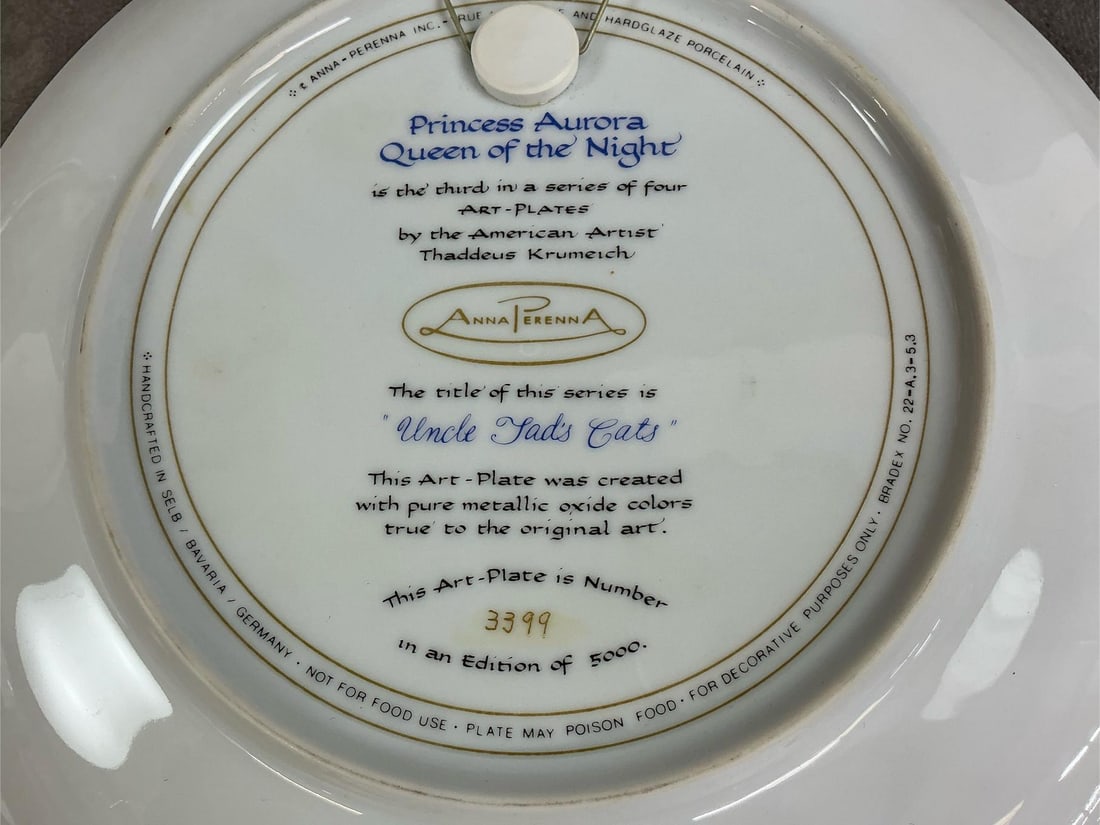 ANNA-PERENNA INC.- AND HARDGLAZE PORCELAIN
Princess Aurora
Queen of the Night
is the third in a series of four
ART-PLATES
by the American Artist
Thaddeus Krumeich
ANNA PERENNA
The title of this series is
"Uncle Tad's Cats"
This Art-Plate was created
with pure metallic oxide colors
true to the original art.
This Art-Plate is Number
3399
in an Edition of 5000.
HANDCRAFTED IN SELB / BAVARIA / GERMANY · NOT FOR FOOD USE · PLATE MAY POISON FOOD · FOR DECORATIVE PURPOSES ONLY · BRADEX NO. 22-A.3-5.3